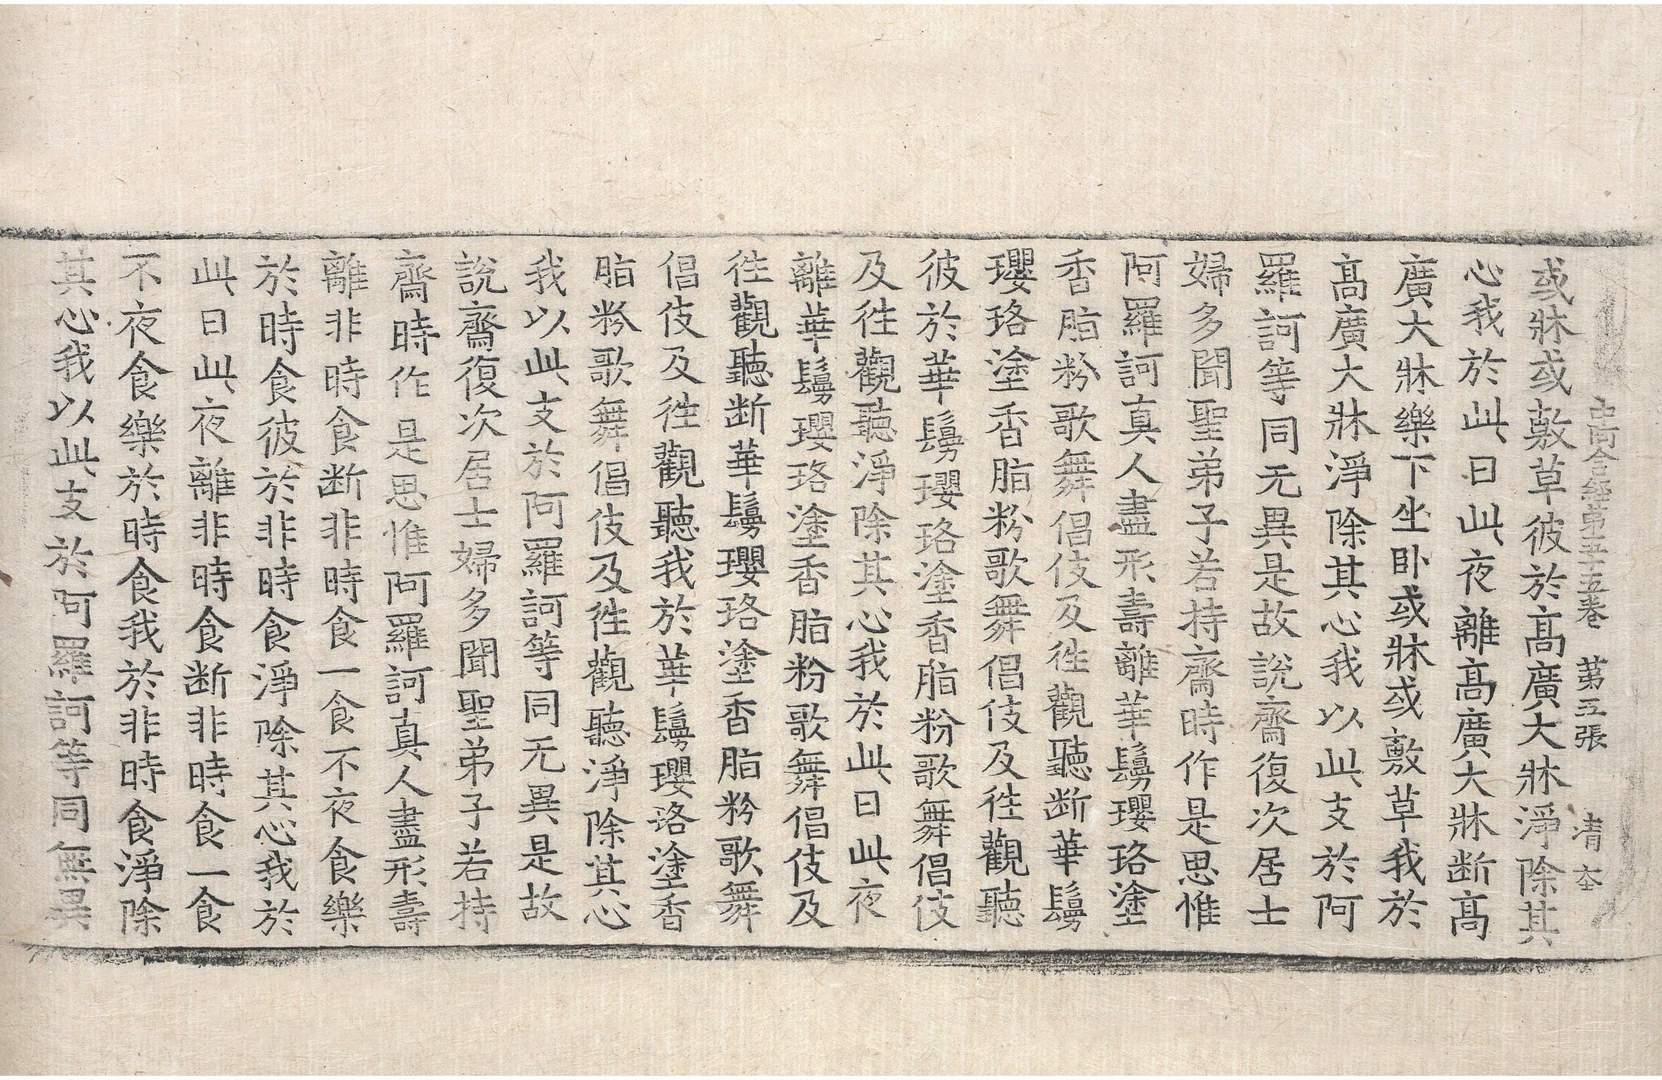 中阿含經第五十五卷 第五張 清
或牀或敷草彼於高廣大牀淨除其
心我於此日此夜離高廣大牀断高
廣大牀樂下坐卧或牀或敷草我於
高廣大牀淨除其心我以此支於阿
羅訶等同无異是故說齋復次居士
婦多聞聖弟子若持齋時作是思惟
阿羅訶真人盡形壽離華鬘瓔珞塗
香脂粉歌舞倡伎及徃觀聽断華鬘
瓔珞塗香脂粉歌舞倡伎及徃觀聽
彼於華鬘瓔珞塗香脂粉歌舞倡伎
及徃觀聽淨除其心我於此日此夜
離華鬘瓔珞塗香脂粉歌舞倡伎及
徃觀聽断華鬘瓔珞塗香脂粉歌舞
倡伎及徃觀聽我於華鬘瓔珞塗香
脂粉歌舞倡伎及徃觀聽淨除其心
我以此支於阿羅訶等同无異是故
說齋復次居士婦多聞聖弟子若持
齋時作是思惟阿羅訶真人盡形壽
離非時食断非時食一食不夜食樂
於時食彼於非時食淨除其心我於
此日此夜離非時食断非時食一食
不夜食樂於時食我於非時食淨除
其心我以此支於阿羅訶等同無異